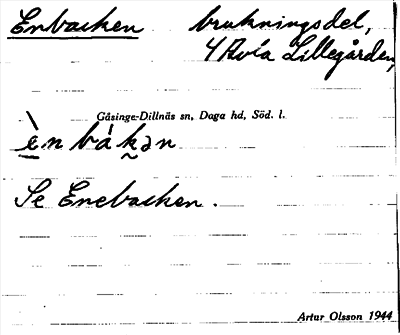 Enbacken brukningsdel,
4 Avla Lillegården,
Gåsinge-Dillnäs sn, Daga hd, Söd. l.
è̱n bák̬ən
Se Enebacken.
Artur Olsson 1944